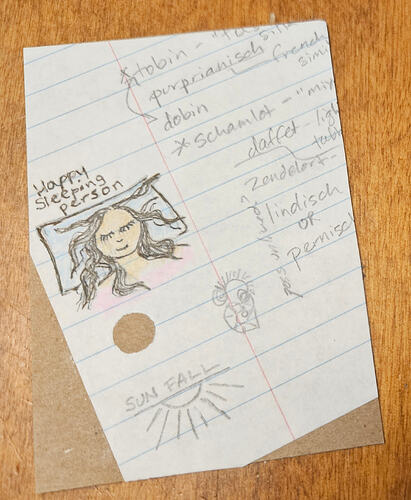 *tobin - "
purprianisch
french
simi
dobin
*schamlot - "mix
daffet - lig
zendelort -
lindisch
OR
pernisch
Happy
Sleeping
person
SUN FALL